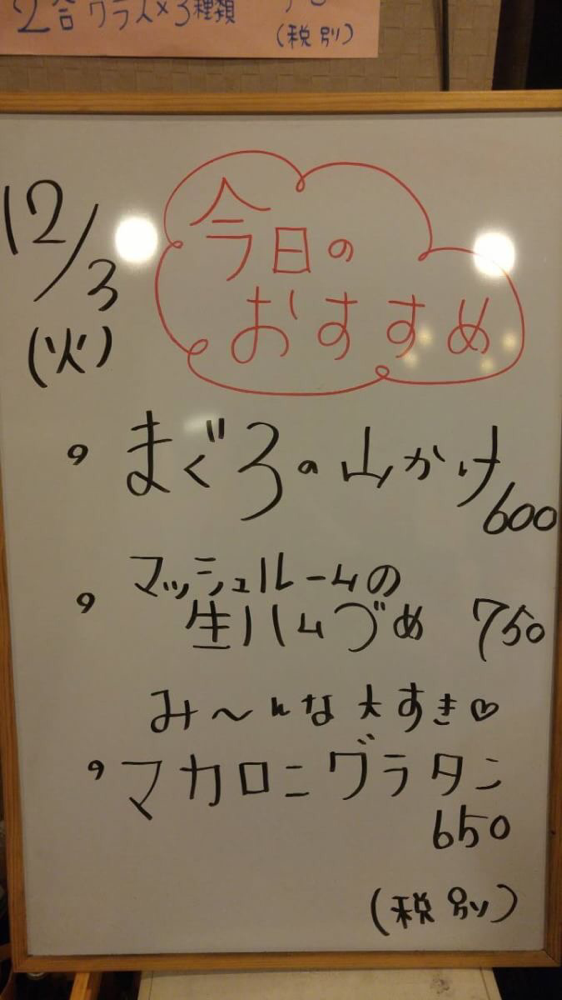 2合グラス×3種類
(税別)
12/3
(火)
今日の
おすすめ
まぐろの山かけ
600
マッシュルームの
生ハムづめ 750
み〜んな大すき♡
マカロニグラタン
650
(税別)